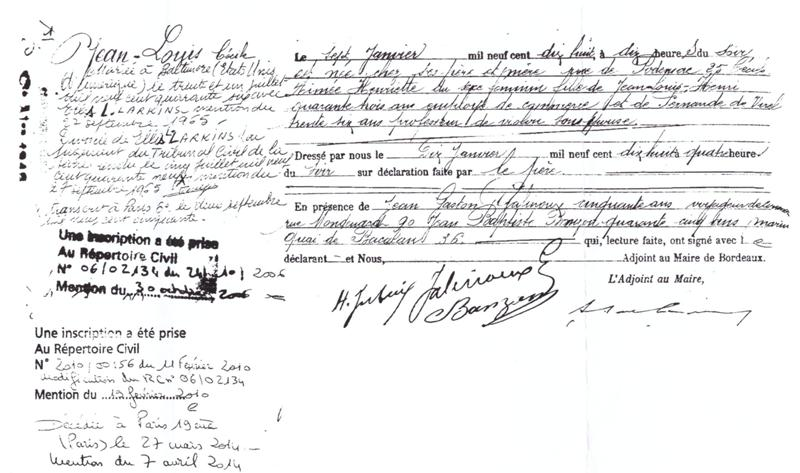 Jean-Louis Cécile
Mariée à Baltimore (Etats Unis
d'Amérique) le trente et un juillet
mil neuf cent quarante six avec
Ellis L. LARKINS mention du
27 septembre 1965
Divorcée de Ellis LARKINS
jugement du Tribunal Civil de la
Seine rendu le cinq juillet mil neuf
cent quarante neuf mention du
27 septembre 1965
transcrit à Paris 6e le deux septembre
mil neuf cent cinquante.
Une inscription a été prise
Au Répertoire Civil
N° 06/02134 du 2006
Mention du 30 octobre 2006
Une inscription a été prise
Au Répertoire Civil
N° 2010/00:56 du 11 Février 2010
modification du RC n° 06/02134
Mention du 19 février 2010
Décédée à Paris 19ème
(Paris) le 27 mars 2014
Mention du 7 avril 2014
Le sept Janvier mil neuf cent dix huit, à dix heures du soir
est née chez ses père et mère rue de 25
Aimée Henriette du sexe féminin fille de Jean-Louis Henri
quarante trois ans employé de commerce et de Fernande de
trente six ans professeur de violon son épouse.
Dressé par nous le Dix Janvier mil neuf cent dix huit à quatre heures
du Soir sur déclaration faite par le père.
En présence de Jean Gaston cinquante ans
rue 90 Jean Baptiste quarante cinq ans marin
Quai de Bacalan 36. qui, lecture faite, ont signé avec le
déclarant et Nous, Adjoint au Maire de Bordeaux.
L'Adjoint au Maire,